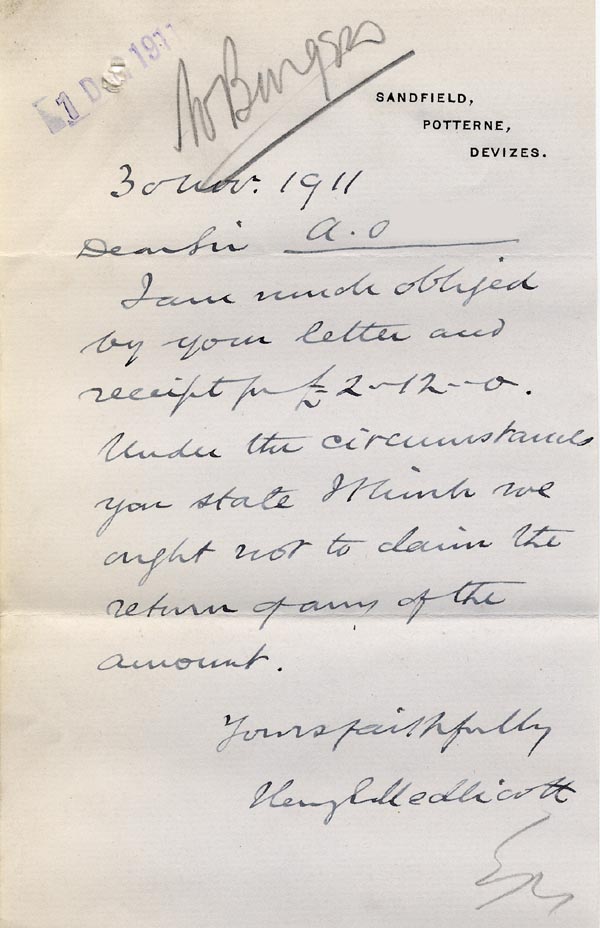 1 DEC 1911
W Burgess
SANDFIELD,
POTTERNE,
DEVIZES.
30 Nov. 1911
Dear Sir A.O
I am much obliged
by your letter and
receipt for £2-12-0.
Under the circumstances
you state I think we
ought not to claim the
return of any of the
amount.
Yours faithfully
Henry E Medlicott